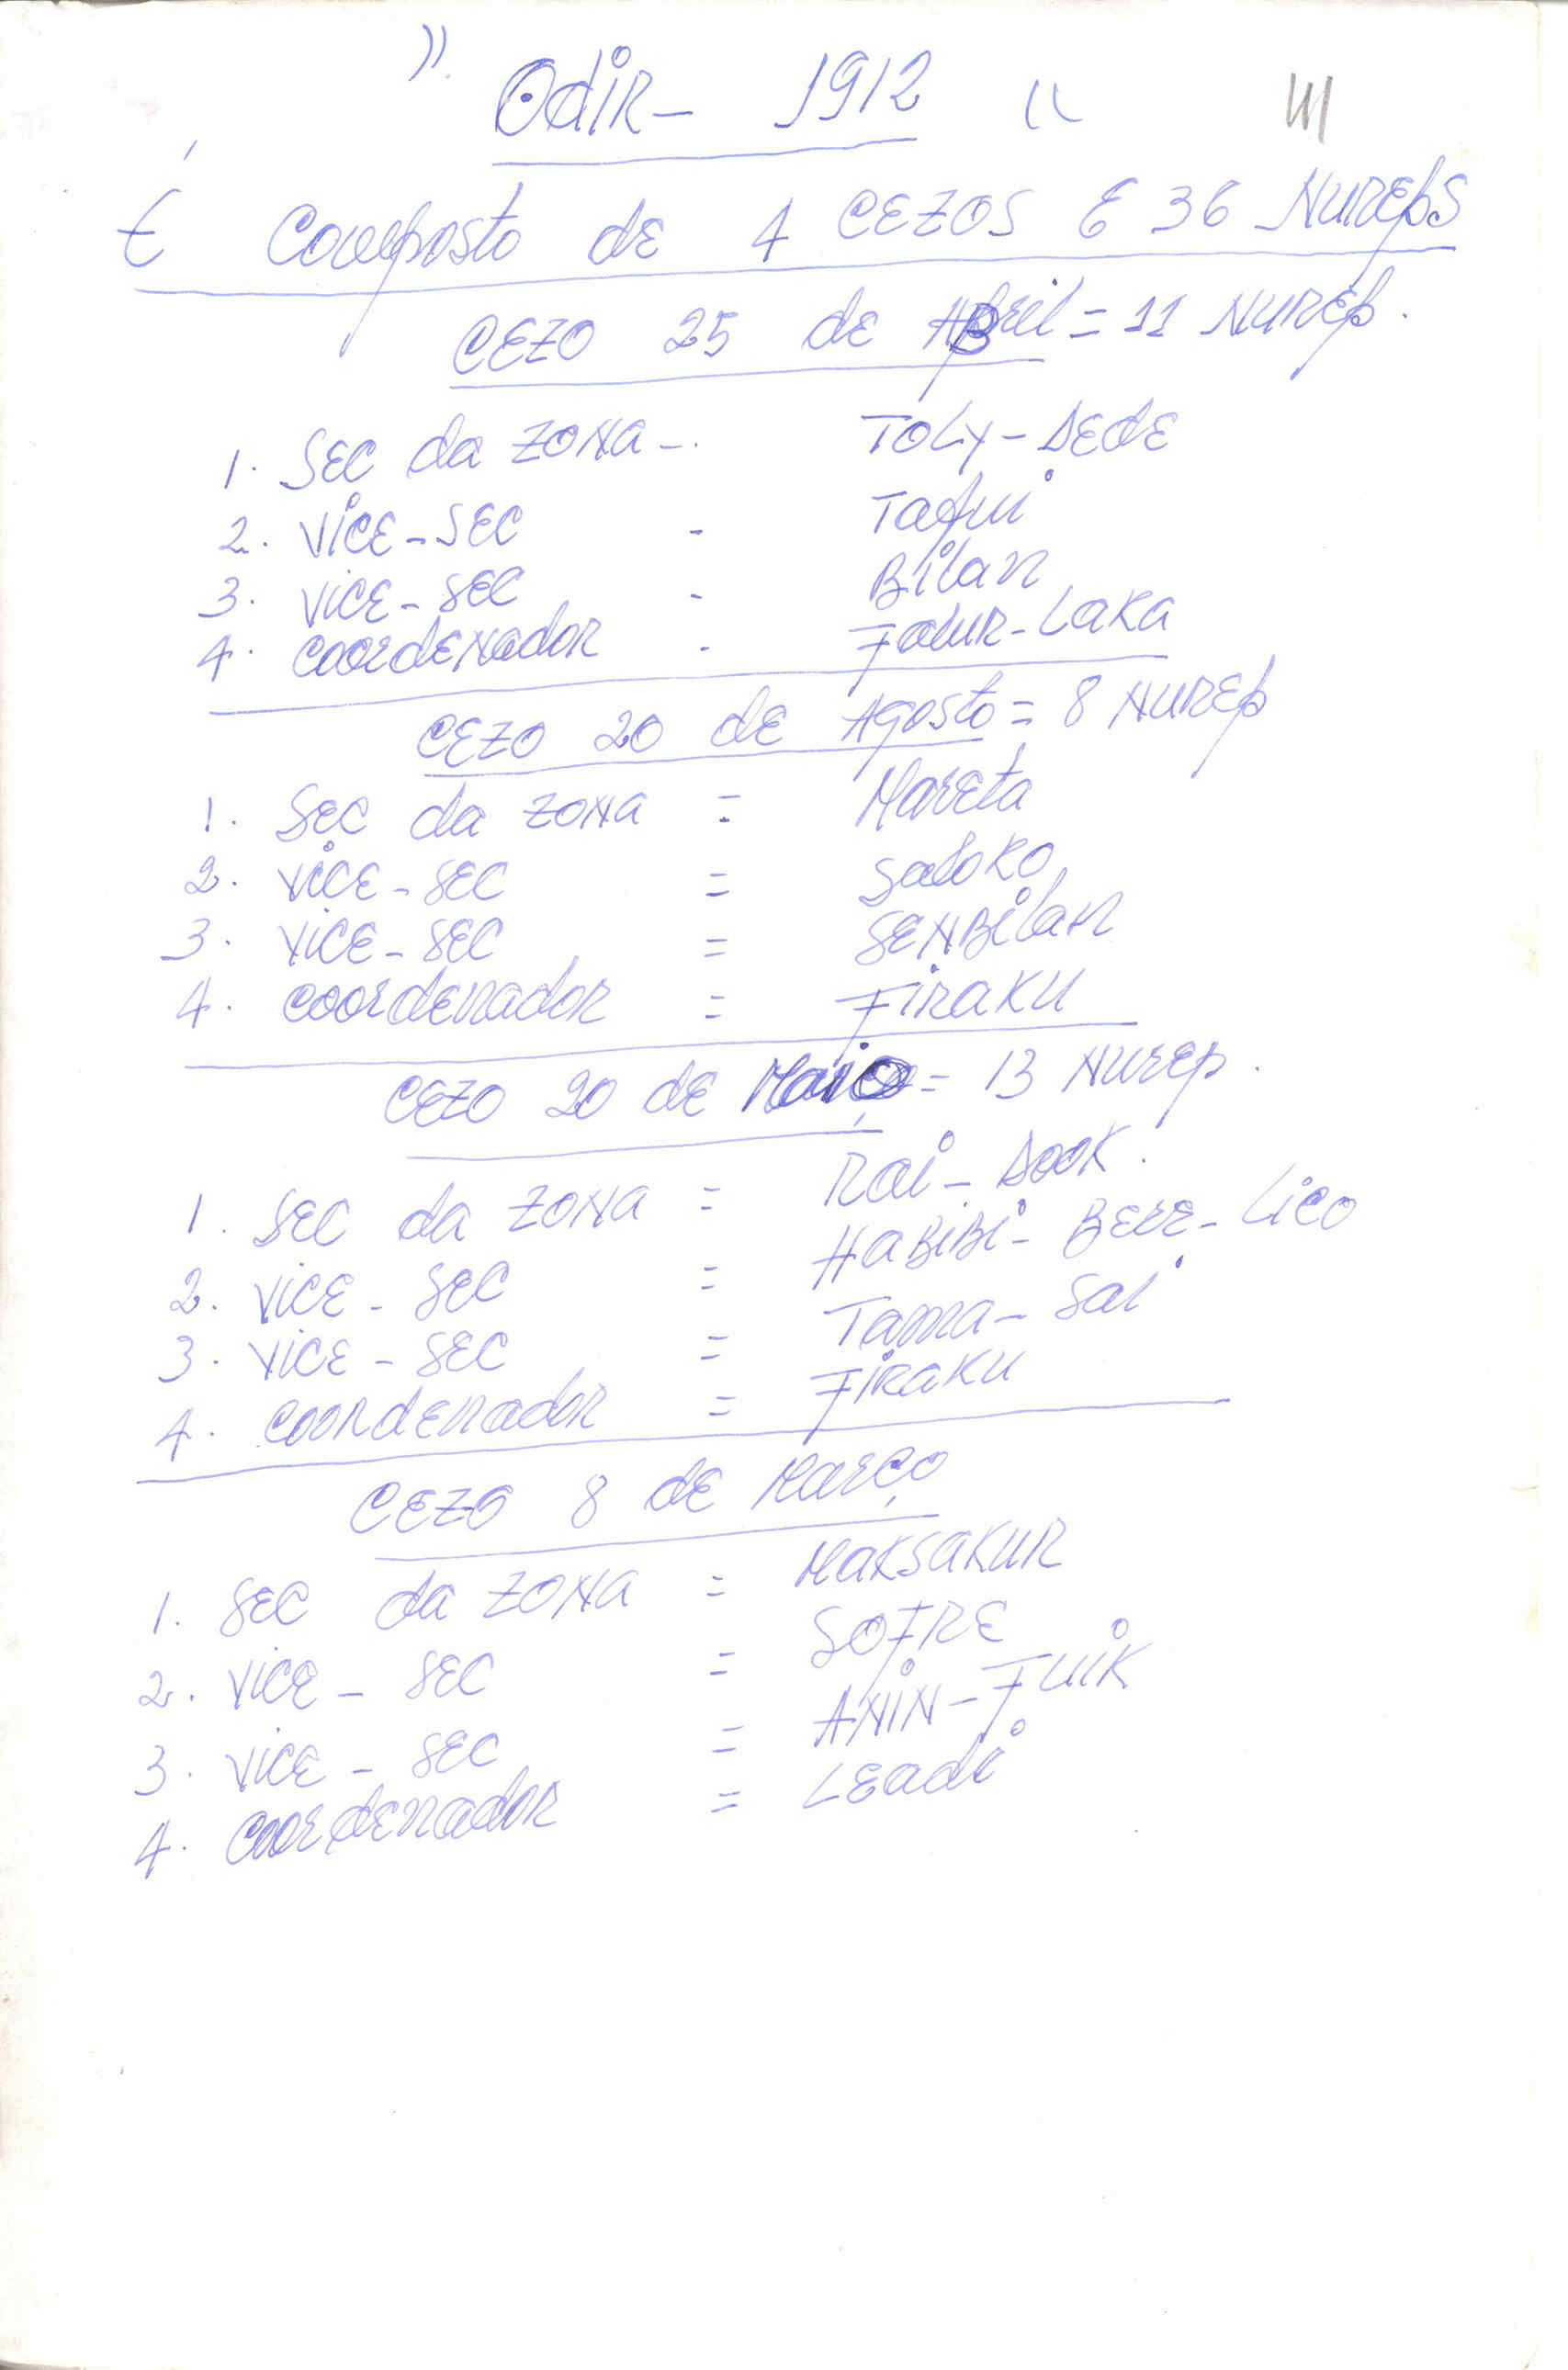 )) Odir - 1912 ((
É Composto de 4 CEZOS E 36 NUREPS
CEZO 25 de ABril = 11 NUREP.
1. SEC da ZONA - . TOLY - DEDE
2. VICE - SEC -
3. VICE - SEC - Bilan
4. COORDENADOR . FALUR - LAKA
CEZO 20 de Agosto = 8 NUREP
1. SEC da ZONA = Mareta
2. VICE - SEC = Saloko
3. VICE - SEC = SENBilan
4. COORDENADOR = FIRAKU
CEZO 20 de Maio = 13 Nurep.
1. SEC da ZONA = Rai - Dook.
2. VICE - SEC = HABiBi - BERE - Lico
3. VICE - SEC = Tama - Sai
4. COORDENADOR = FIRAKU
CEZO 8 de Março
1. SEC da ZONA = MAKSAKUR
2. VICE - SEC = SOFRE
3. VICE - SEC = ANIN - FUIK
4. COORDENADOR = LEADI